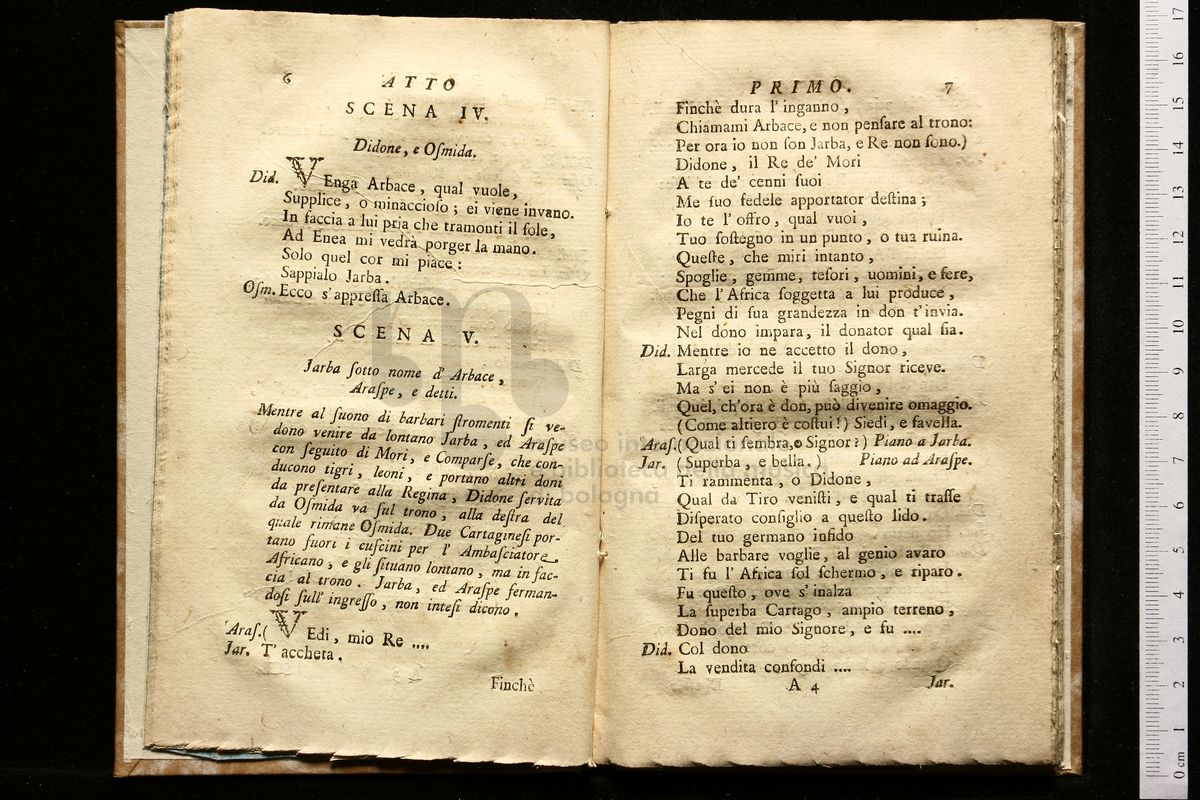 6
ATTO
SCENA IV.
Didone, e Oſmida.
Did. VEnga Arbace, qual vuole,
Supplice, o minaccioſo; ei viene invano.
In faccia a lui pria che tramonti il ſole,
Ad Enea mi vedrà porger la mano.
Solo quel cor mi piace:
Sappialo Jarba.
Oſm. Ecco s'appreſſa Arbace.
SCENA V.
Jarba ſotto nome d' Arbace,
Araſpe, e detti.
Mentre al ſuono di barbari ſtromenti ſi ve-
dono venire da lontano Jarba, ed Araſpe
con ſeguito di Mori, e Comparſe, che con-
ducono tigri, leoni, e portano altri doni
da preſentare alla Regina, Didone ſervita
da Oſmida va ſul trono, alla deſtra del
quale rimane Oſmida. Due Cartagineſi por-
tano fuori i cuſcini per l' Ambaſciatore
Africano, e gli ſituano lontano, ma in fac-
cia al trono. Jarba, ed Araſpe ferman-
doſi ſull' ingreſſo, non inteſi dicono.
Araſ. (VEdi, mio Re ....
Jar. T' accheta.
Finchè
PRIMO.
7
Finchè dura l' inganno,
Chiamami Arbace, e non penſare al trono:
Per ora io non ſon Jarba, e Re non ſono.)
Didone, il Re de' Mori
A te de' cenni ſuoi
Me ſuo fedele apportator deſtina;
Io te l' offro, qual vuoi,
Tuo ſoſtegno in un punto, o tua ruina.
Queſte, che miri intanto,
Spoglie, gemme, teſori, uomini, e fere,
Che l' Africa ſoggetta a lui produce,
Pegni di ſua grandezza in don t' invia.
Nel dono impara, il donator qual ſia.
Did. Mentre io ne accetto il dono,
Larga mercede il tuo Signor riceve.
Ma s' ei non è più ſaggio,
Quel, ch'ora è don, può divenire omaggio.
(Come altiero è coſtui!) Siedi, e favella.
Araſ. (Qual ti ſembra, o Signor?) Piano a Jarba.
Jar. (Superba, e bella.) Piano ad Araſpe.
Ti rammenta, o Didone,
Qual da Tiro veniſti, e qual ti traſſe
Diſperato conſiglio a queſto lido.
Del tuo germano infido
Alle barbare voglie, al genio avaro
Ti fu l' Africa ſol ſchermo, e riparo.
Fu queſto, ove s' inalza
La ſuperba Cartago, ampio terreno,
Dono del mio Signore, e fu ....
Did. Col dono
La vendita confondi ....
A 4
Jar.
biblioteca della musica
bologna
0 cm 1 2 3 4 5 6 7 8 9 10 11 12 13 14 15 16 17